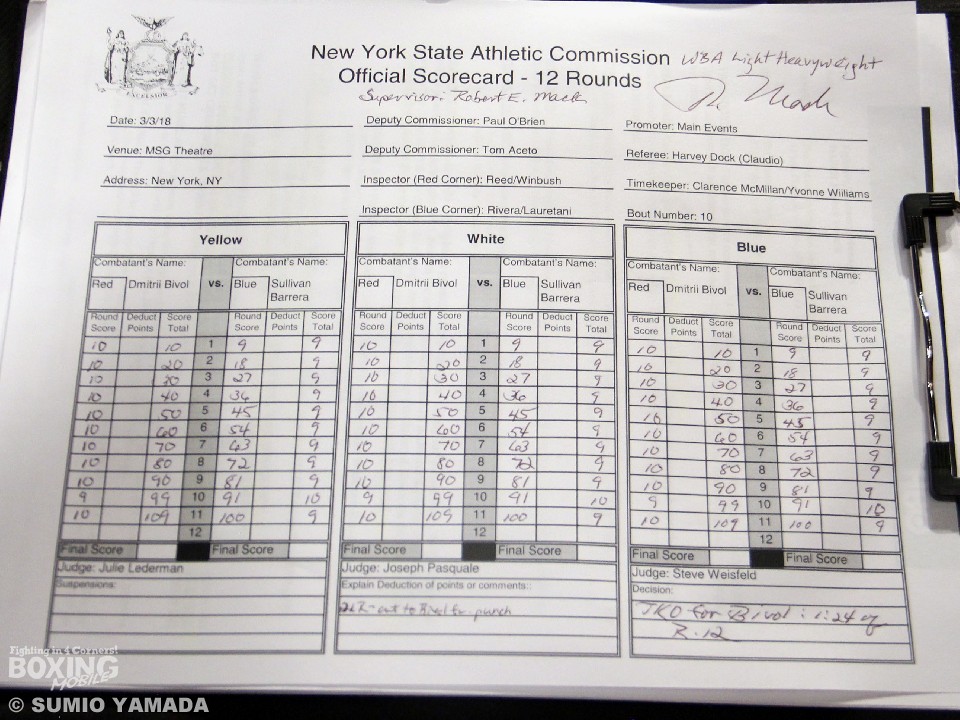 EXCELSIOR
New York State Athletic Commission WBA Light Heavyweight
Official Scorecard - 12 Rounds
Supervisor: Robert E. Mack
Date: 3/3/18 Deputy Commissioner: Paul O'Brien Promoter: Main Events
Venue: MSG Theatre Deputy Commissioner: Tom Aceto Referee: Harvey Dock (Claudio)
Address: New York, NY Inspector (Red Corner): Reed/Winbush Timekeeper: Clarence McMillan/Yvonne Williams
Inspector (Blue Corner): Rivera/Lauretani Bout Number: 10
Yellow White Blue
Combatant's Name: Combatant's Name: Combatant's Name: Combatant's Name: Combatant's Name: Combatant's Name:
Red Dmitrii Bivol vs. Blue Sullivan Barrera Red Dmitrii Bivol vs. Blue Sullivan Barrera Red Dmitrii Bivol vs. Blue Sullivan Barrera
Round Score Deduct Points Score Total Round Score Deduct Points Score Total Round Score Deduct Points Score Total Round Score Deduct Points Score Total Round Score Deduct Points Score Total Round Score Deduct Points Score Total
10 10 1 9 9 10 10 1 9 9 10 10 1 9 9
10 20 2 18 9 10 20 2 18 9 10 20 2 18 9
10 30 3 27 9 10 30 3 27 9 10 30 3 27 9
10 40 4 36 9 10 40 4 36 9 10 40 4 36 9
10 50 5 45 9 10 50 5 45 9 10 50 5 45 9
10 60 6 54 9 10 60 6 54 9 10 60 6 54 9
10 70 7 63 9 10 70 7 63 9 10 70 7 63 9
10 80 8 72 9 10 80 8 72 9 10 80 8 72 9
10 90 9 81 9 10 90 9 81 9 10 90 9 81 9
9 99 10 91 10 9 99 10 91 10 9 99 10 91 10
10 109 11 100 9 10 109 11 100 9 10 109 11 100 9
12 12 12
Final Score Final Score Final Score Final Score Final Score Final Score
Judge: Julie Lederman Judge: Joseph Pasquale Judge: Steve Weisfeld
Suspensions: Explain Deduction of points or comments:: Decision:
cut to Bivol for punch TKO for Bivol: 1:24 of
R.12
Fighting in 4 Corners!
BOXING
MOBILE
© SUMIO YAMADA